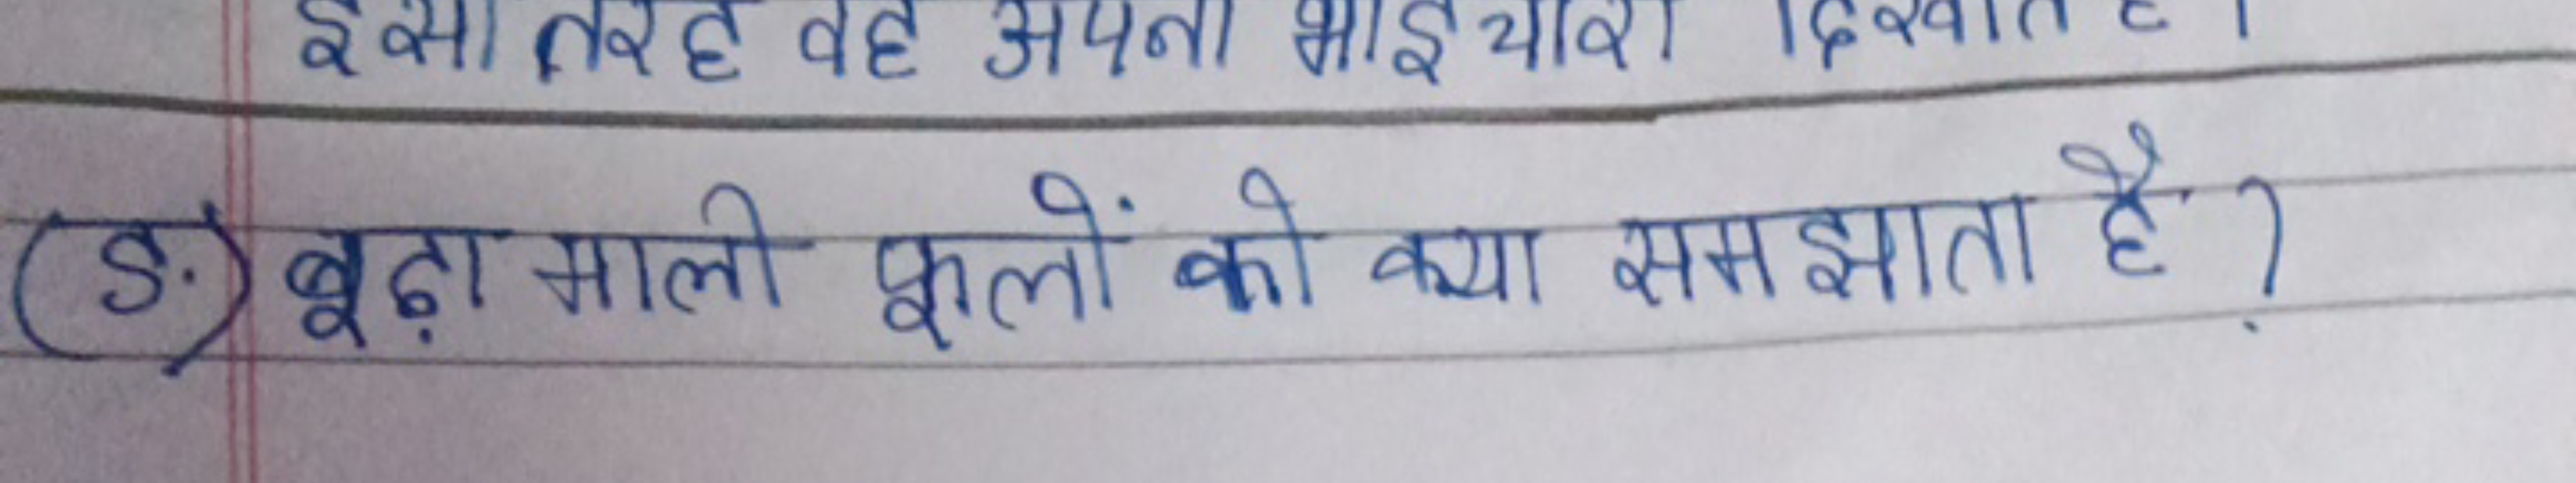 इसी तरह वह अपना भाईचारा दिखाते है।
(ङ) बूढ़ा माली फूलों को क्या समझाता है?